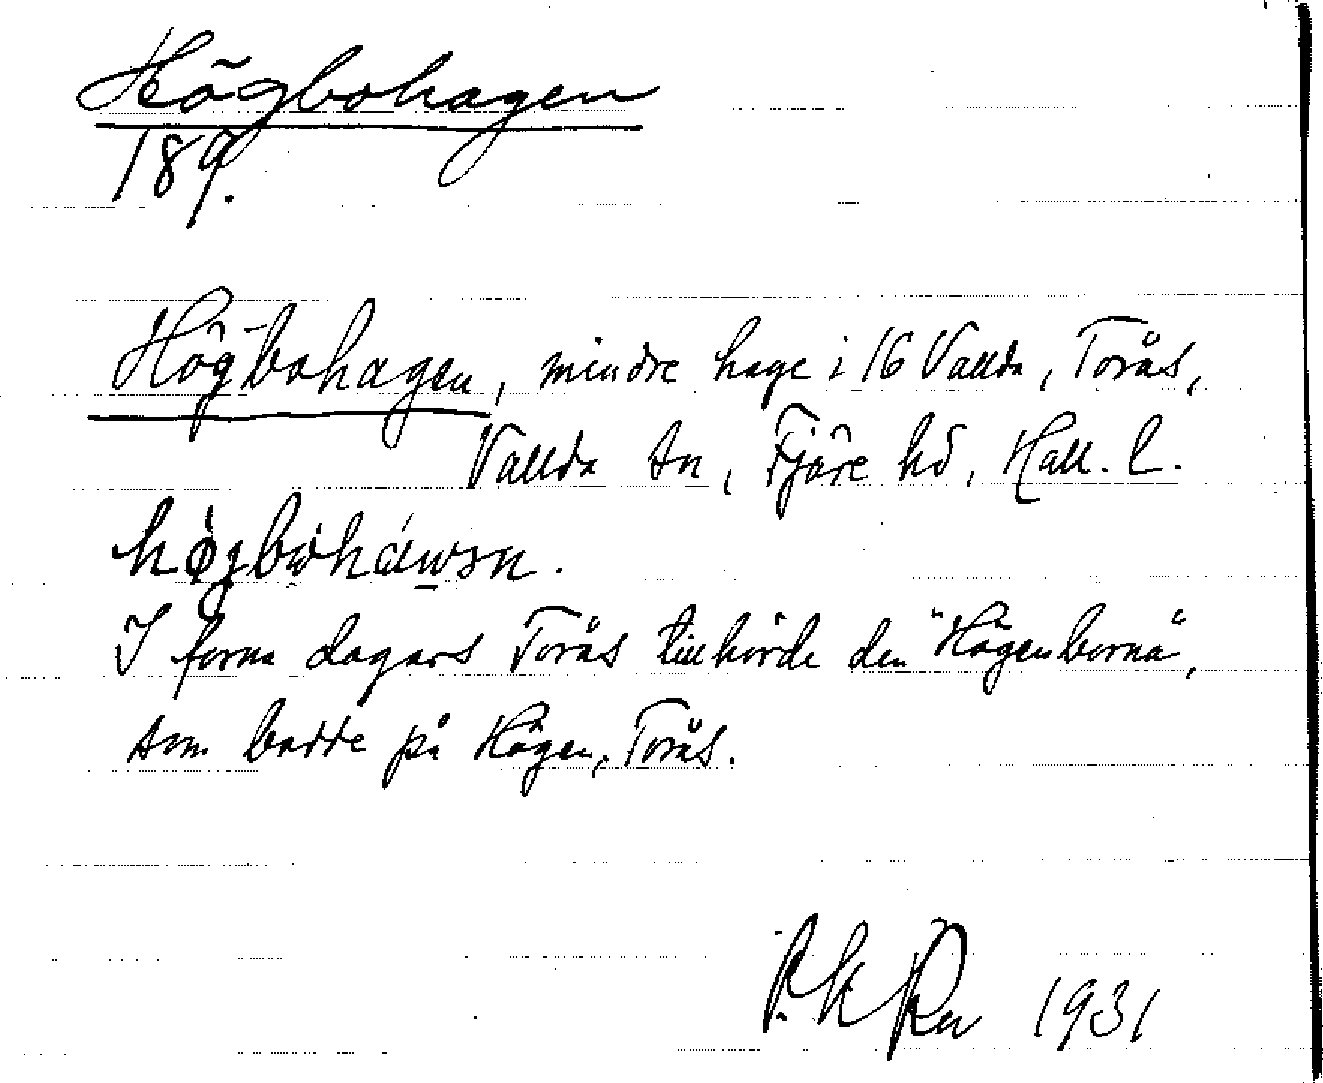 Högbohagen
189.
Högbohagen, mindre hage i 16 Vallda, Torås,
Vallda sn, Fjäre hd, Hall. l.
I forna dagars Torås tillhörde den "Högenborna",
som bodde på Högen, Torås.
1931